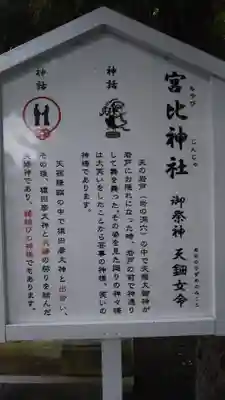 みやび じんじゃ
宮比神社
御祭神 天鈿女命
あめのうずめのみこと
神話
天の岩戸(岩の洞穴)の中で天照大御神が
岩戸にお隠れになった時、岩戸の前で神通り
して舞を舞った。その姿を見た周りの神々様
は大笑いをしたことから芸事の神様、笑いの
神様であります。
神話
天孫降臨の中で猿田彦大神と出会い、
その後、猿田彦大神と夫婦の契りを結んだ
夫婦神であり、縁結びの神様でもあります。